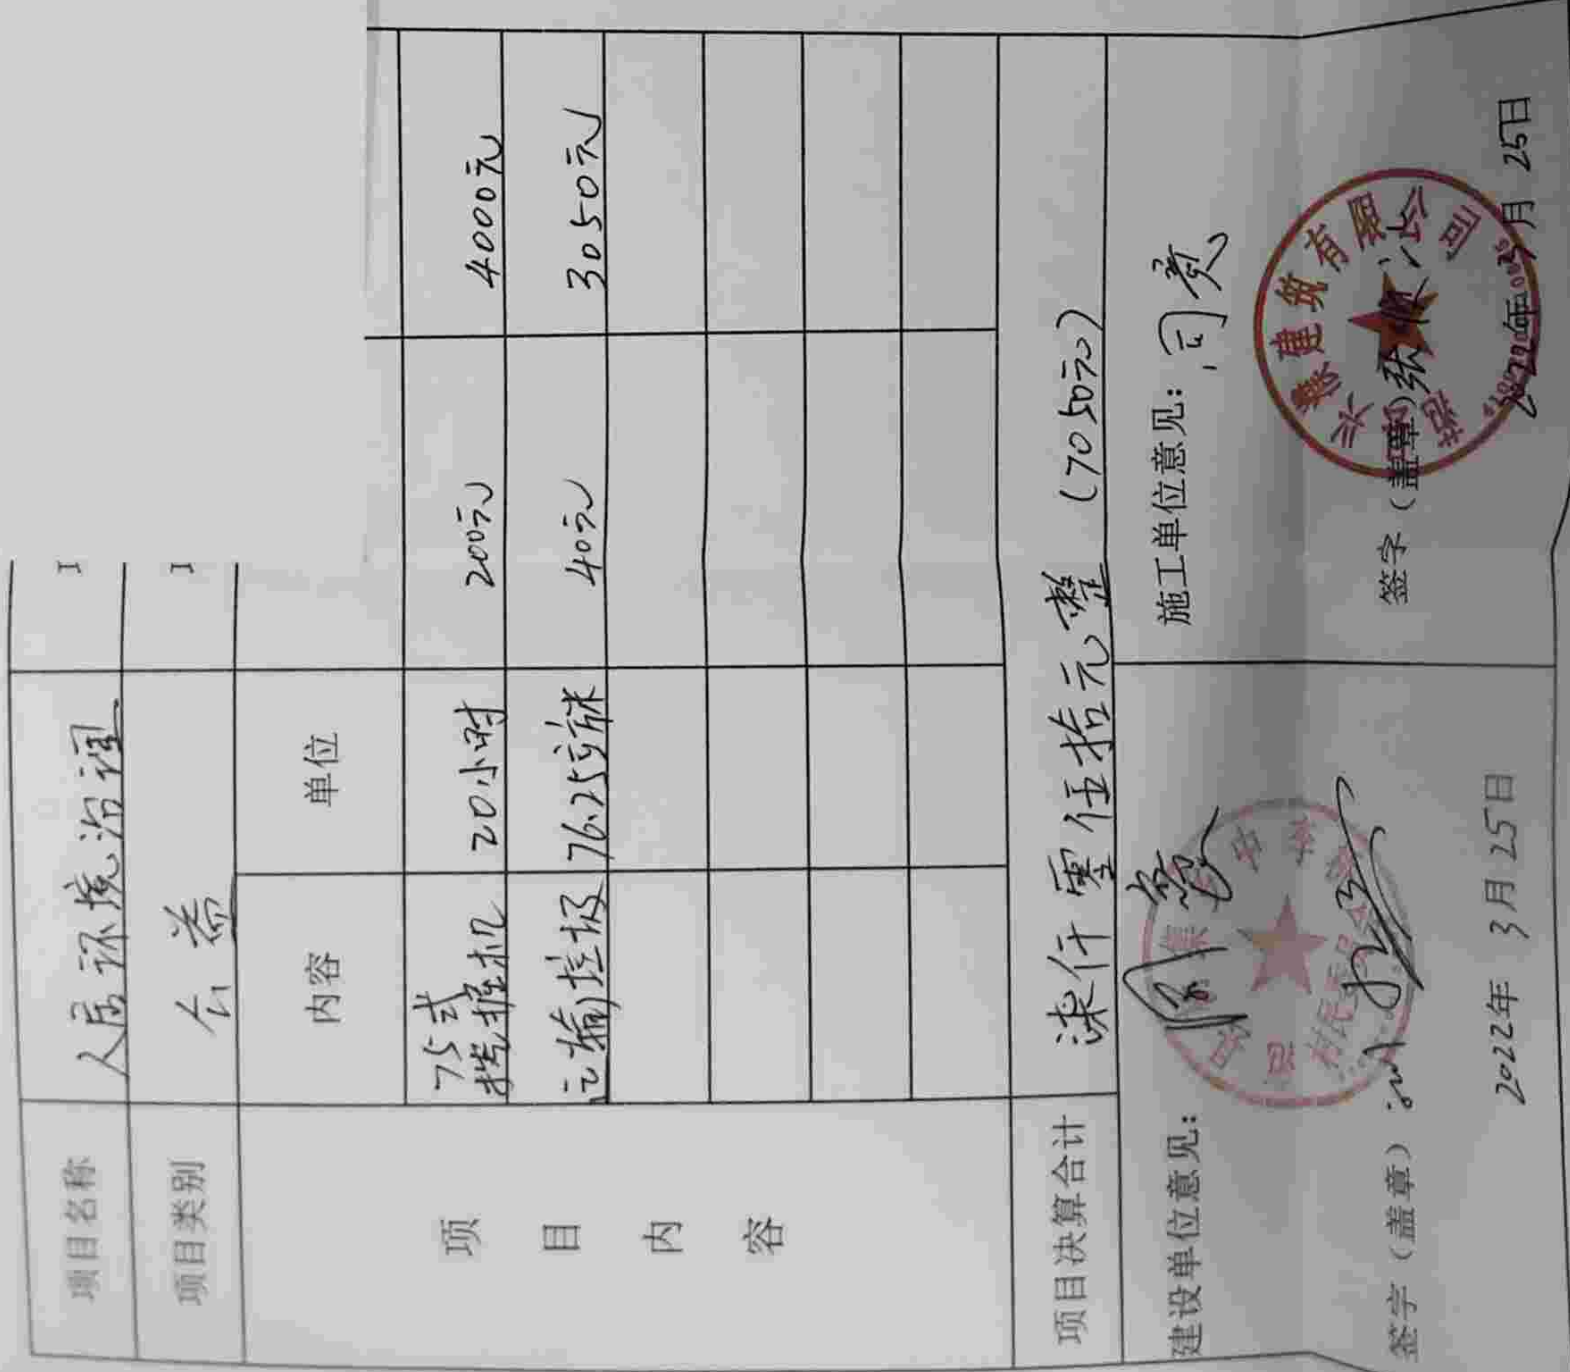 项目名称 人居环境治理
项目类别 公益
项目内容
内容 单位
75式挖掘机 20小时 200元 4000元
运输垃圾 76.25立方米 40元 3050元
项目决算合计 柒仟零伍拾元整（7050元）
建设单位意见：
签字（盖章）：
2022年 3月25日
施工单位意见：同意
签字（盖章）
2022年3月25日
建筑有限公司
村民委员会